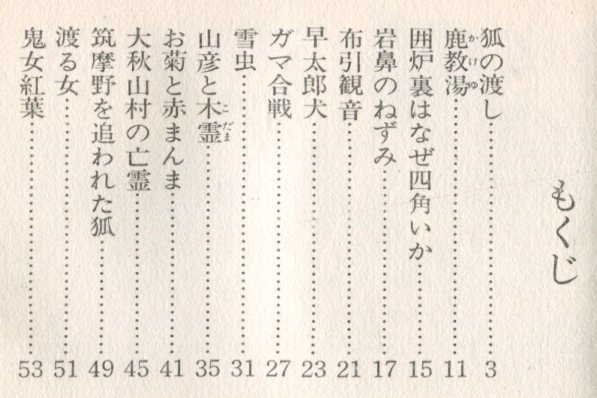 もくじ
狐の渡し……………………3
鹿教湯……………………11
囲炉裏はなぜ四角いか……………………15
岩鼻のねずみ……………………17
布引観音……………………21
早太郎犬……………………23
ガマ合戦……………………27
雪虫……………………31
山彦と木霊……………………35
お菊と赤まんま……………………41
大秋山村の亡霊……………………45
筑摩野を追われた狐……………………49
渡る女……………………51
鬼女紅葉……………………53
かけゆ
こだま